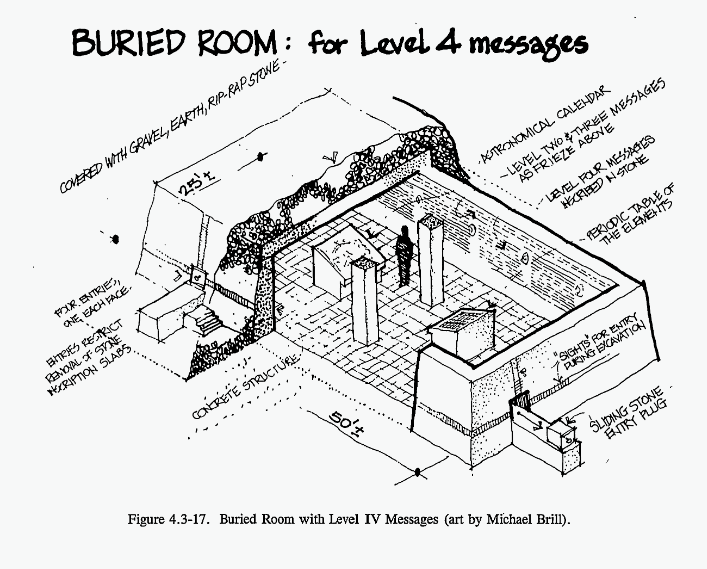 BURIED ROOM: for Level 4 messages
COVERED WITH GRAVEL, EARTH, RIP-RAP STONE
25'±
ASTRONOMICAL CALENDAR
LEVEL TWO & THREE MESSAGES
AS FRIEZE ABOVE
LEVEL FOUR MESSAGES
INSCRIBED IN STONE
PERIODIC TABLE OF
THE ELEMENTS
FOUR ENTRIES,
ONE EACH FACE.
ENTRIES RESTRICT
REMOVAL OF STONE
INSCRIPTION SLABS
CONCRETE STRUCTURE
50'±
"SIGHTS" FOR ENTRY
DURING EXCAVATION
SLIDING STONE
ENTRY PLUG
Figure 4.3-17. Buried Room with Level IV Messages (art by Michael Brill).